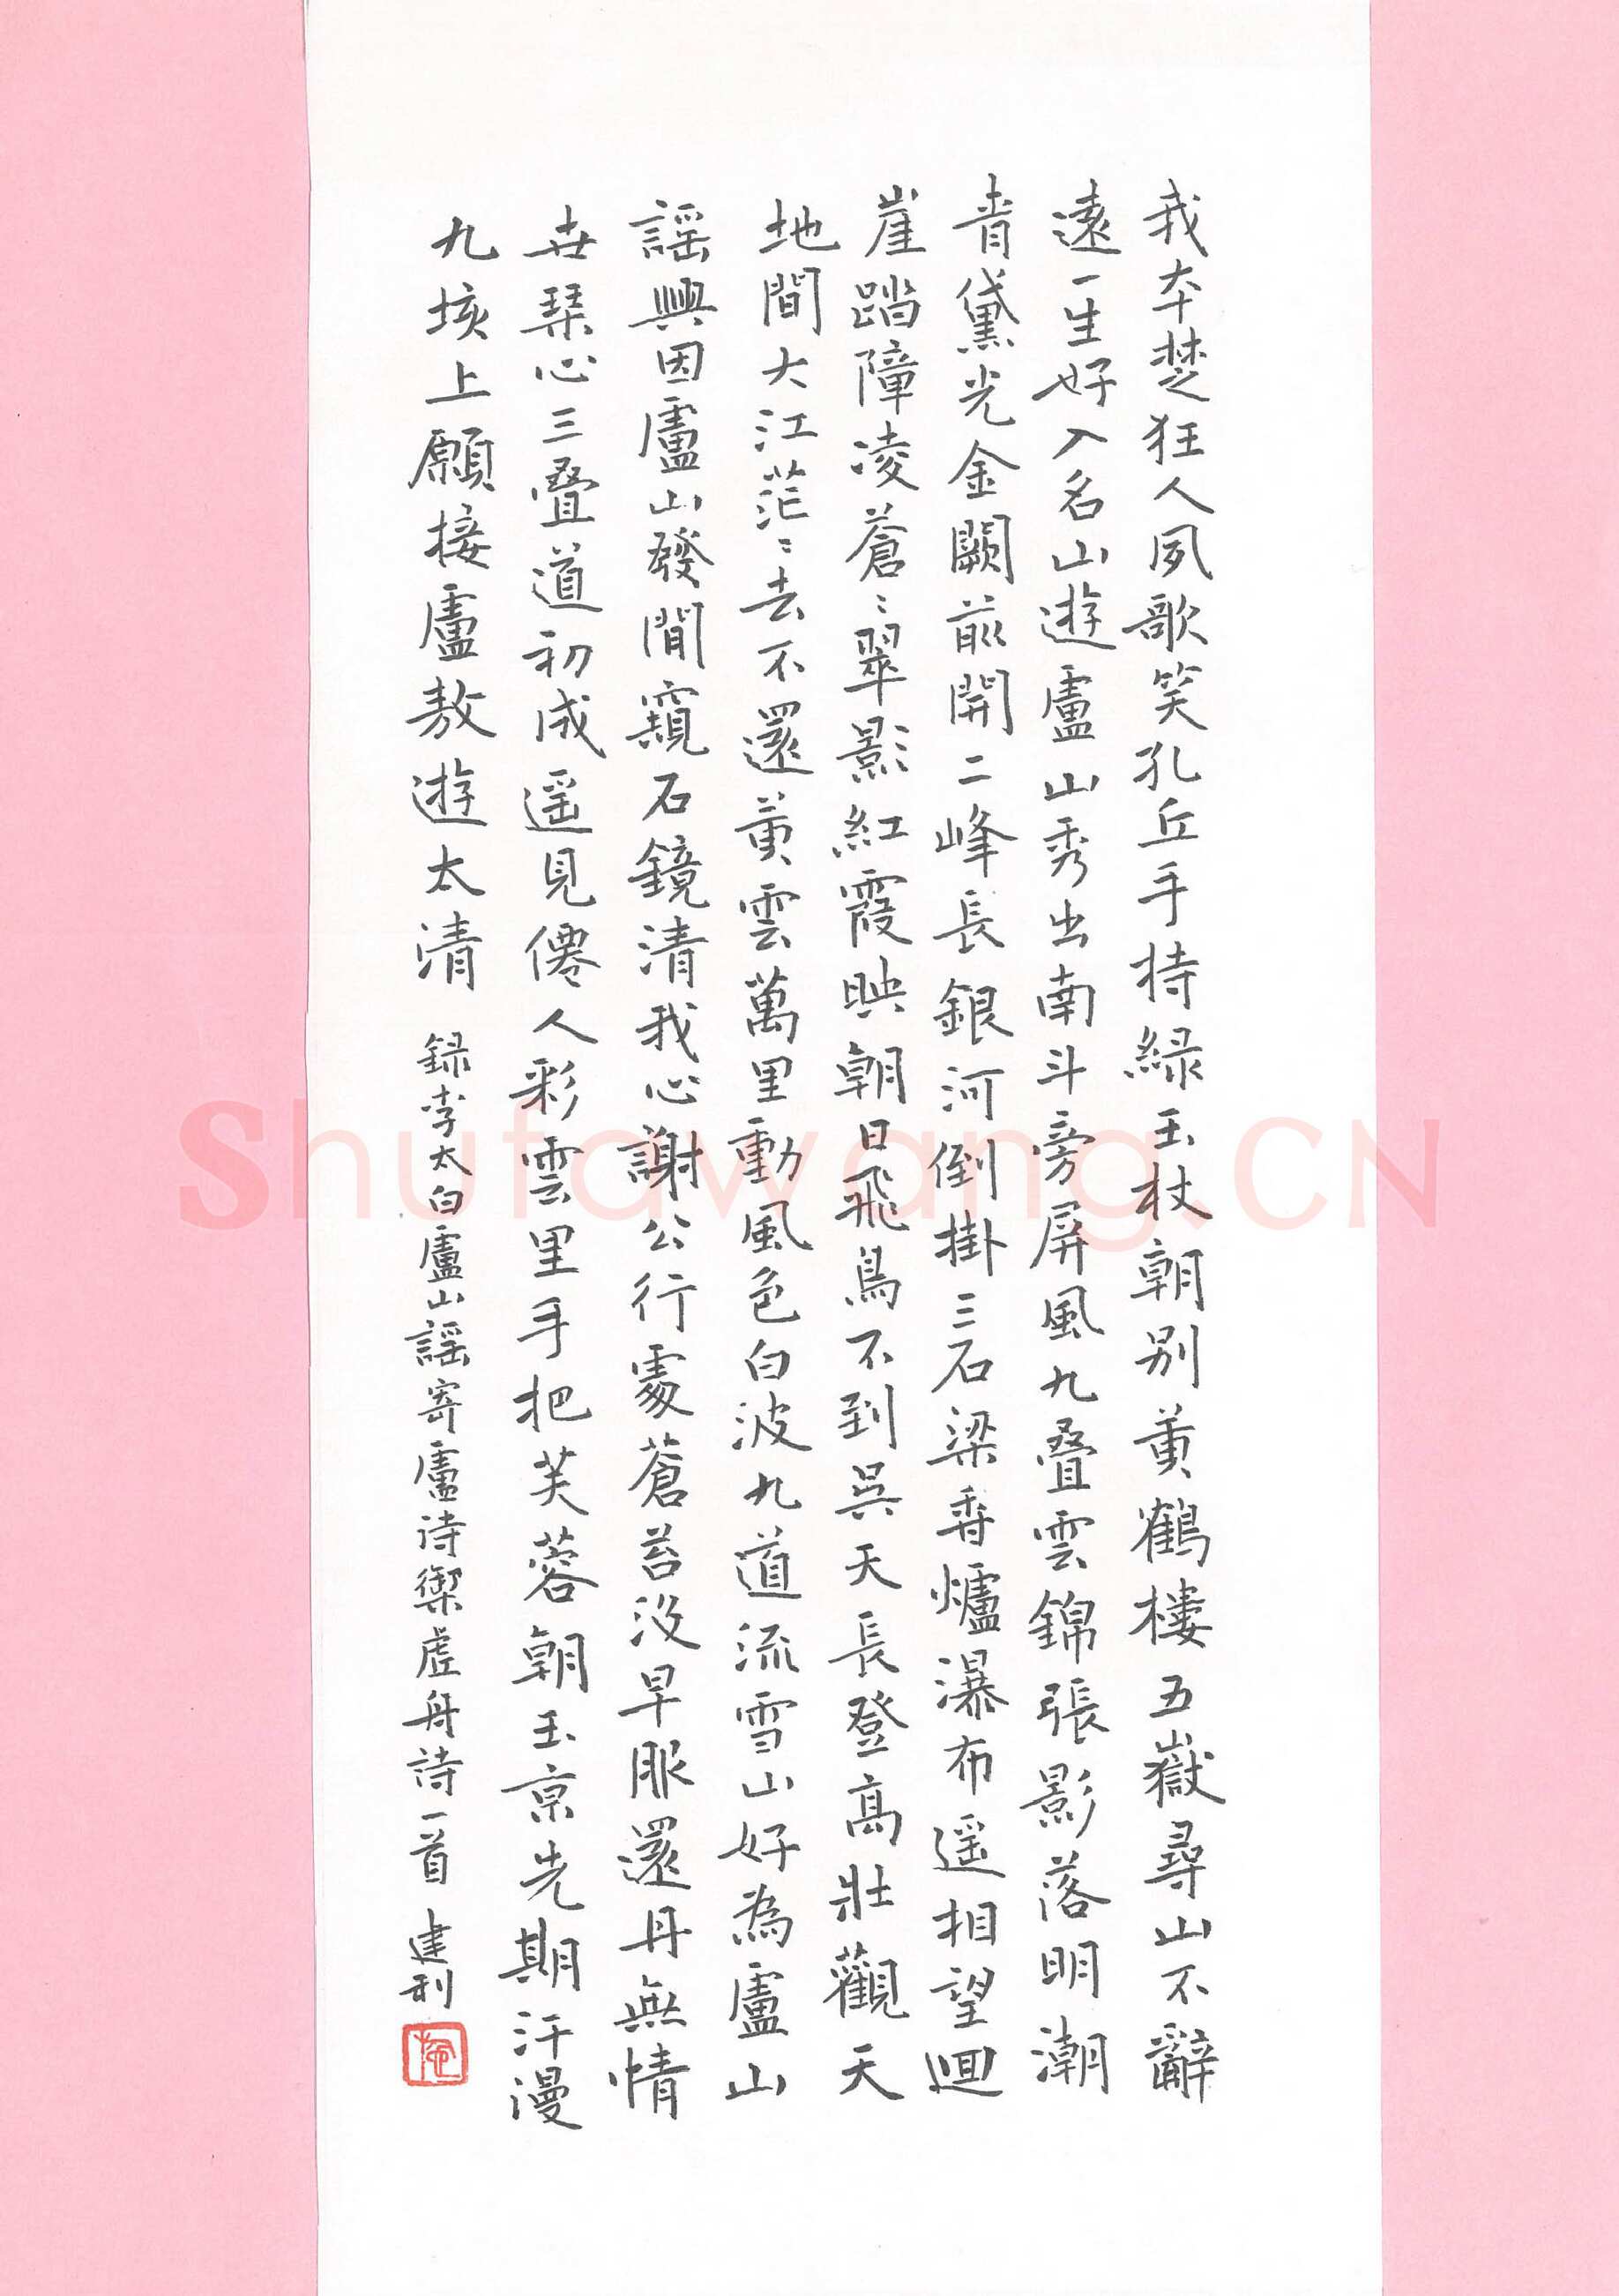 我本楚狂人夙歌笑孔丘手持緑玉杖朝别黄鶴楼五嶽尋山不辭
遠一生好入名山遊盧山秀出南斗旁屏風九叠雲錦張影落明潮
青黛光金闕前開二峰長銀河倒掛三石梁香爐瀑布遥相望迴
崖踏障凌蒼〻翠影紅霞映朝日飛鳥不到吳天長登高壯觀天
地間大江茫〻去不還黄雲萬里動風色白波九道流雪山好為盧山
謡興因盧山發閒窺石鏡清我心謝公行處蒼苔没早服還丹無情
世琹心三叠道初成遥見僊人彩雲里手把芙蓉朝玉京先期汗漫
九垓上願接盧敖遊太清
録李太白盧山謡寄盧诗禦虚舟詩一首 建利
Shufawang.CN